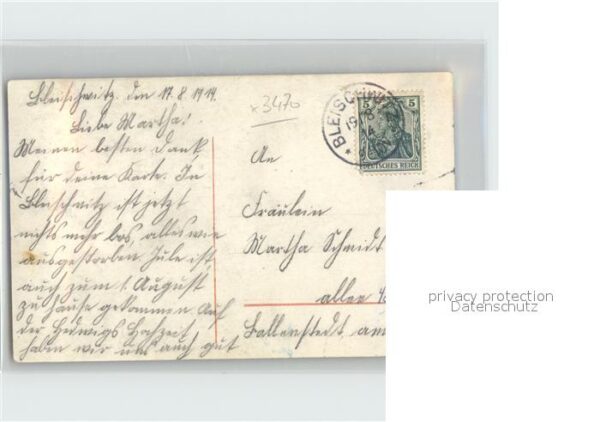 Bleischwitz, den 17.8.1914.
Liebe Martha!
Meinen besten Dank
für deine Karte. In
Bleischwitz ist jetzt
nichts mehr los, alles wie
ausgestorben. Jule ist
auch zum 1. August
zu Hause gekommen. Auf
der Hedwigs Hochzeit
haben wir uns auch gut
x3470
BLEISCHWITZ
5 5
DEUTSCHES REICH
An
Fräulein
Martha Schmidt
allee
Ballenstedt am
privacy protection
Datenschutz